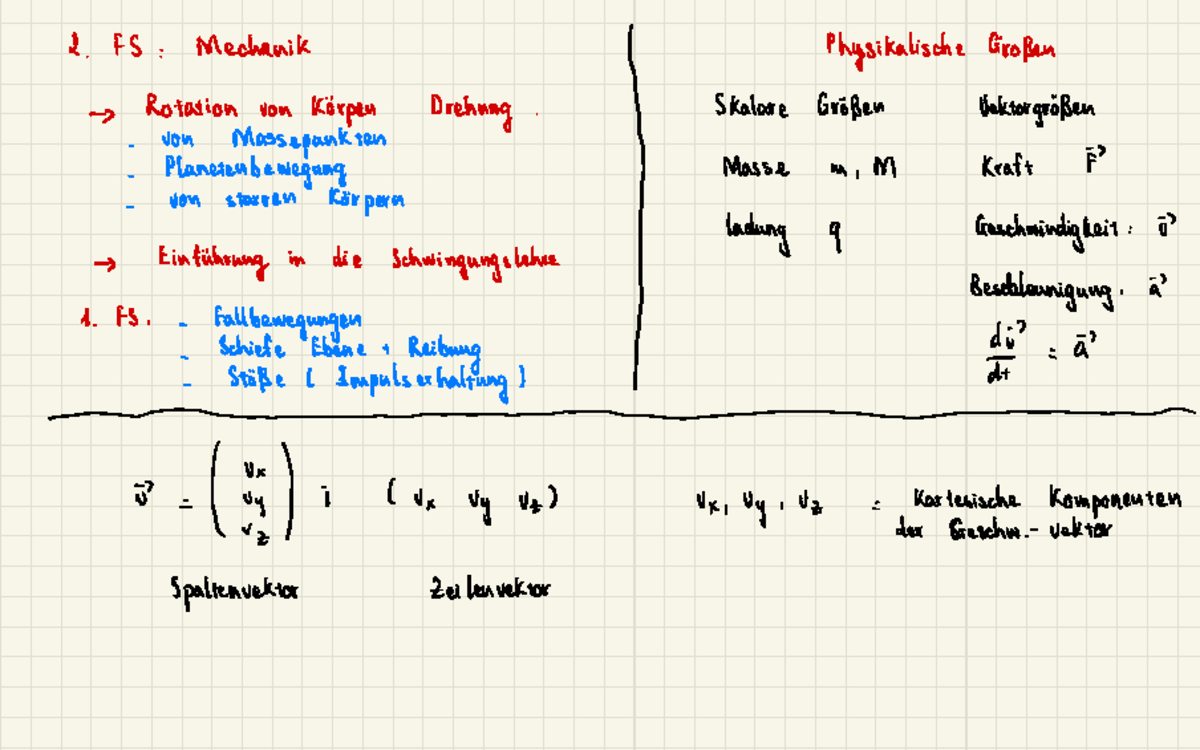 2. FS: Mechanik
→ Rotation von Körpen Drehung.
- von Massepunkten
- Planetenbewegung
- von starren Körpern
→ Einführung in die Schwingungslehre
1. FS. - Fallbewegungen
- Schiefe Ebene + Reibung
- Stöße ( Impulserhaltung )
Physikalische Großen
Skalare Größen Vektorgrößen
Masse m, M Kraft F⃗
ladung q Geschwindigkeit: v⃗
Beschleunigung. a⃗
dv⃗/dt = a⃗
v⃗ = ( vx vy vz ) ; ( vx vy vz )
Spaltenvektor Zeilenvektor
vx, vy, vz = Kartesische Komponenten
der Geschw.-vektor